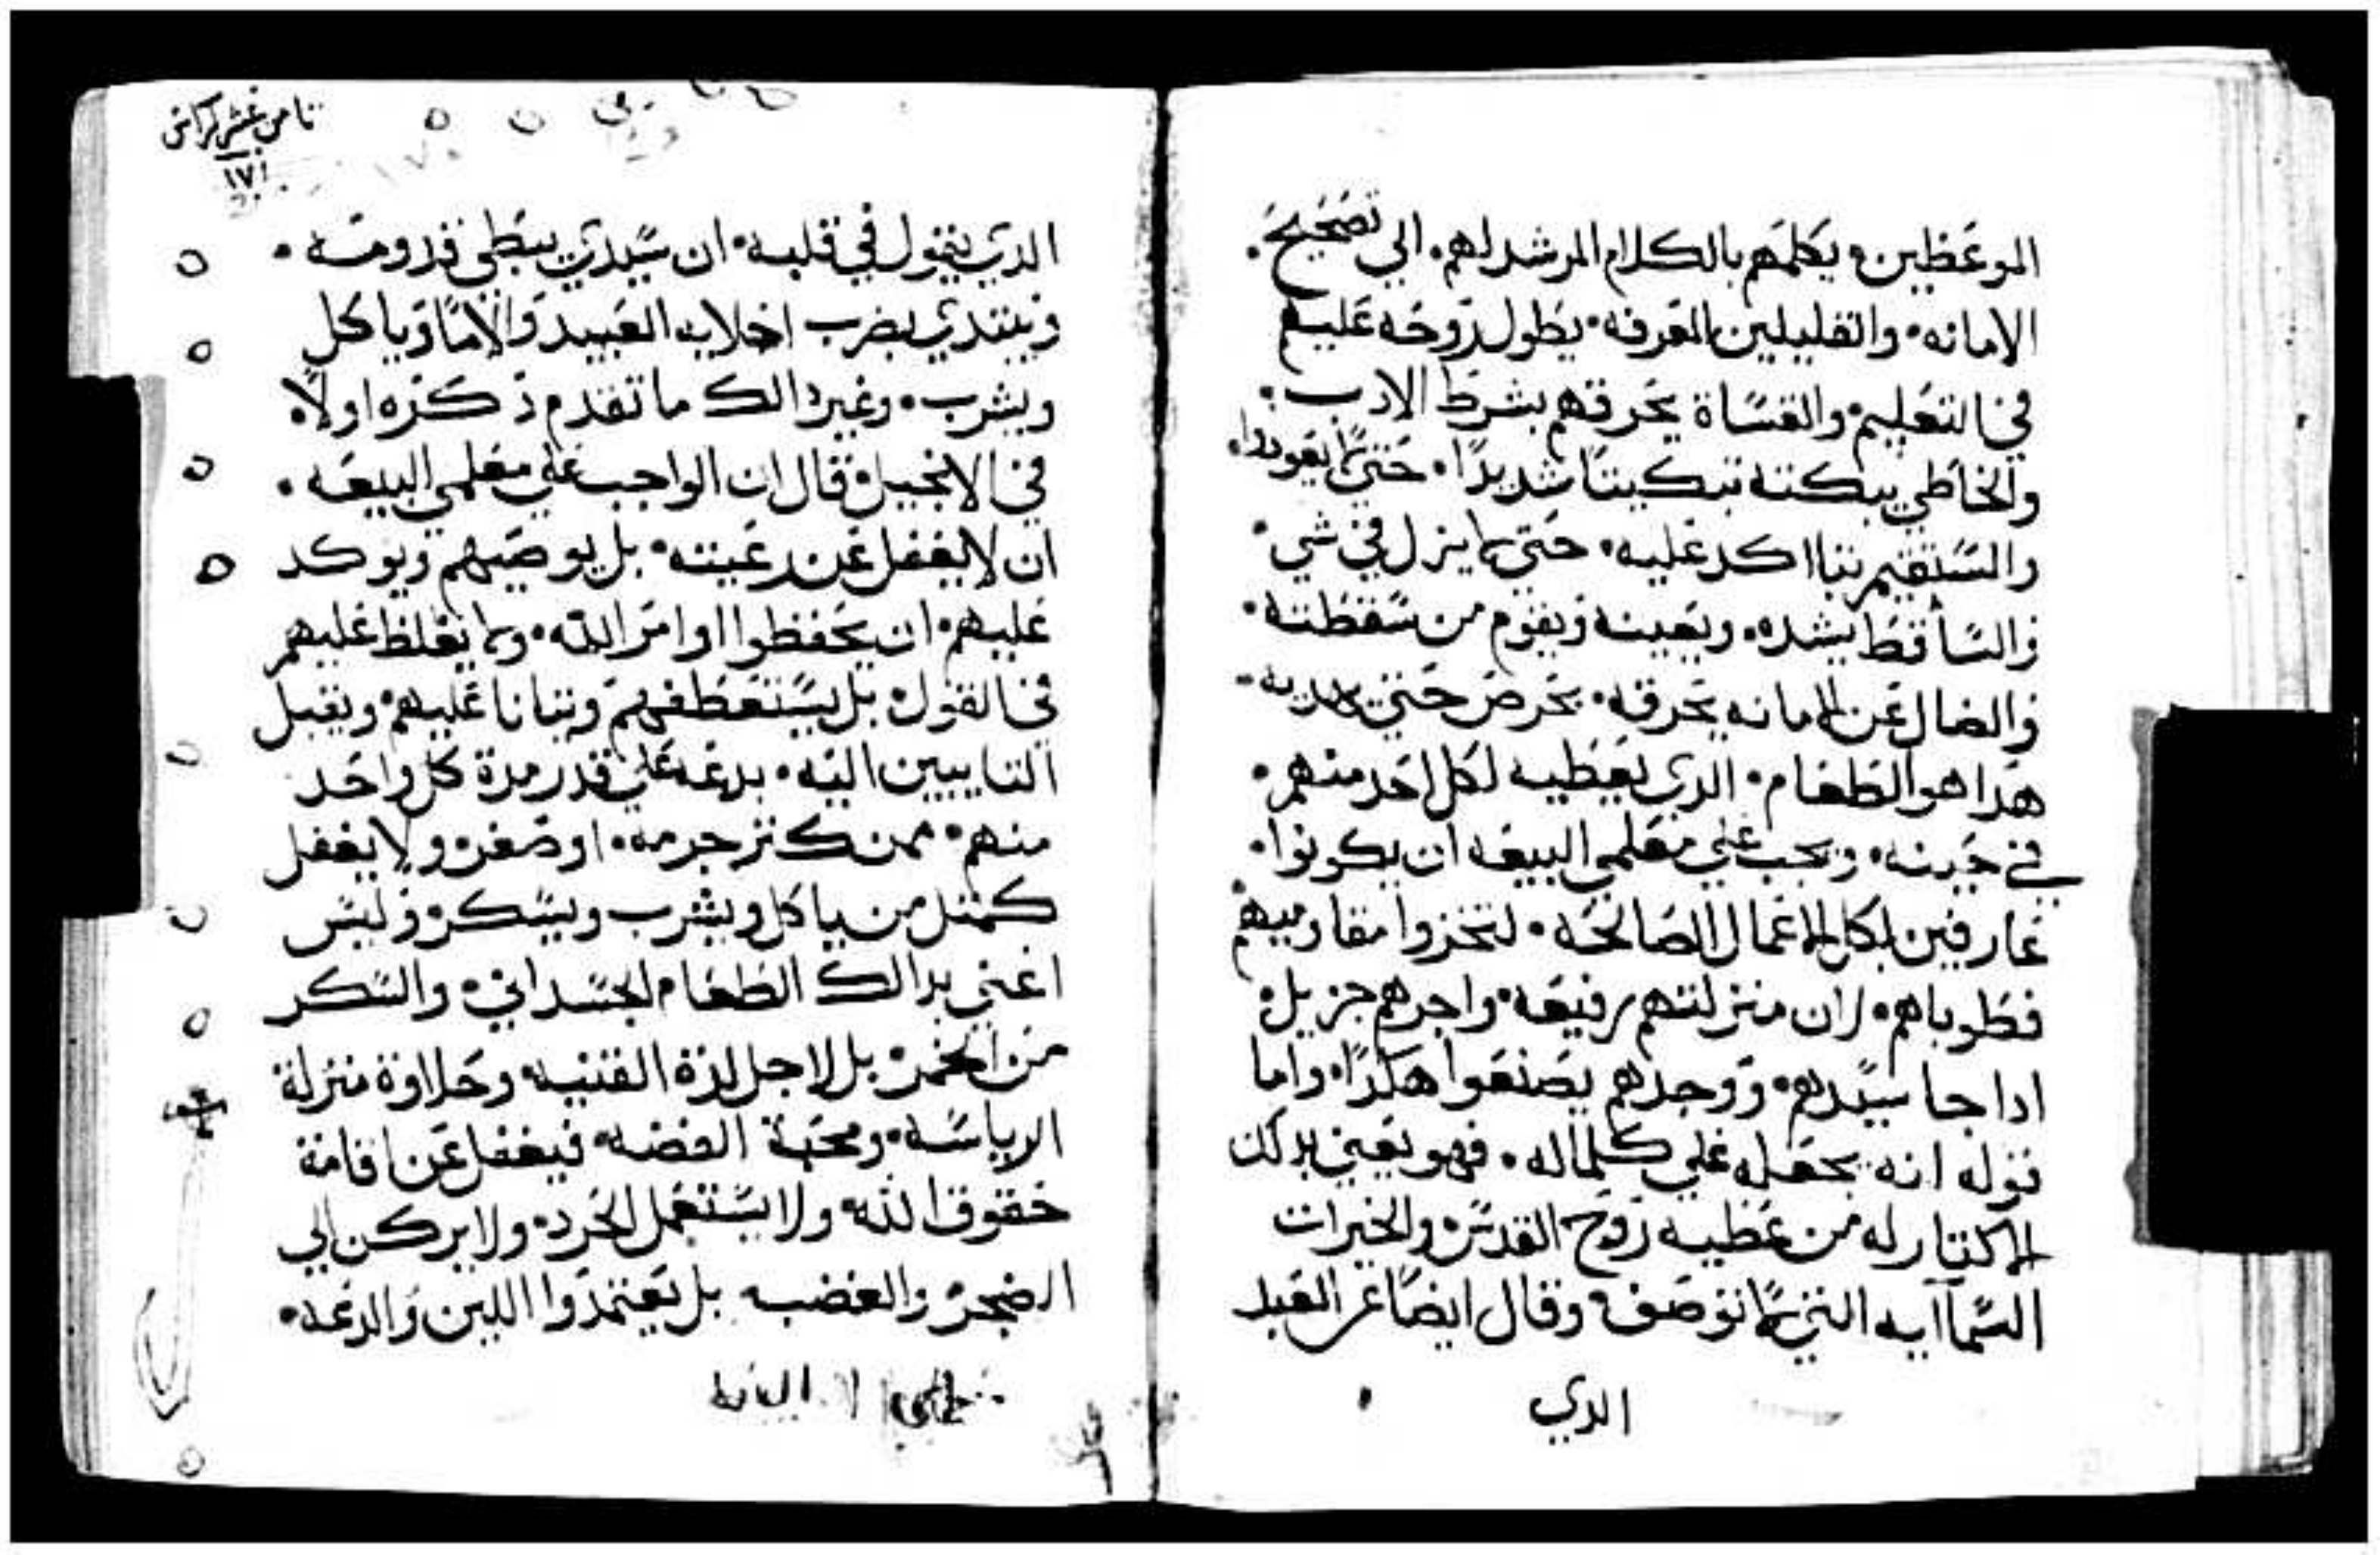 الموعظين. يكلمهم بالكلام المرشد لهم. الي تصحيح.
الامانه. والقليلين المعرفه. يطول روحه عليهم
في التعليم. والقساة يحرقهم بشرط الادب.
والخاطي يبكته تبكيتا شديدا. حتي لا يعودوا.
والمستقيم يتااكد عليه. حتي لا يزل في شي.
والساقط يشده. ويعينه ويقوم من سقطته.
والضال عن الامانه يحرقه. يحرص حتي
هدا هو الطعام. الدي يعطيه لكل احد منهم.
في حينه. ويجب علي معلمي البيعه ان يكونوا.
عارفين بكل الاعمال الصالحه. لتخزوا مقاوميهم
فطوباهم. لان منزلتهم رفيعه. واجرهم جزيل.
ادا جا سيدهم. ووجدهم يصنعوا هكدا. واما
قوله انه يجعله علي كلماله. فهو يعني بدلك
الاكتار له من عطيه روح القدس. والخيرات
السماآيه التي لا توصف. وقال ايضا عن العبد
الدي
تامن عشر كراس
١٧١
الدي يقول في قلبه. ان سيدي يبطي قدومه.
ويبتدي يضرب اخلايه العبيد والاما وياكل
ويشرب. وغير دالك ما تقدم دكره اولا.
في الانجيل. قال ان الواجب علي معلمي البيعه.
ان لا يغفل عن رعيته. بل يوصيهم ويوكد
عليهم. ان يحفظوا اوامر الله. ولا يغلظ عليهم
في القول. بل يستعطفهم ويتانا عليهم. ويقبل
التايبين اليه. بدعه علي قدر مدة كل واحد
منهم. ممن كتر جرمه. او صغر. ولا يغفل
كمتل من ياكل ويشرب ويسكر. وليس
اعني بدالك الطعام الجسداني. والسكر
من الخمر. بل لاجل لدة القنيه. وحلاوة منزلة
الرياسه. ومحبة الفضه. فيغفل عن اقامة
حقوق الله. ولا يستعمل الحرد. ولا يركن الي
الضجر والغضب. بل يعتمدوا اللين والدعه.